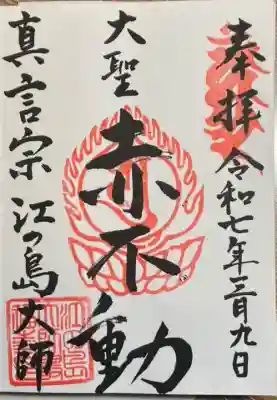 奉拝 令和七年三月九日
大聖
赤不動
真言宗 江の島大師